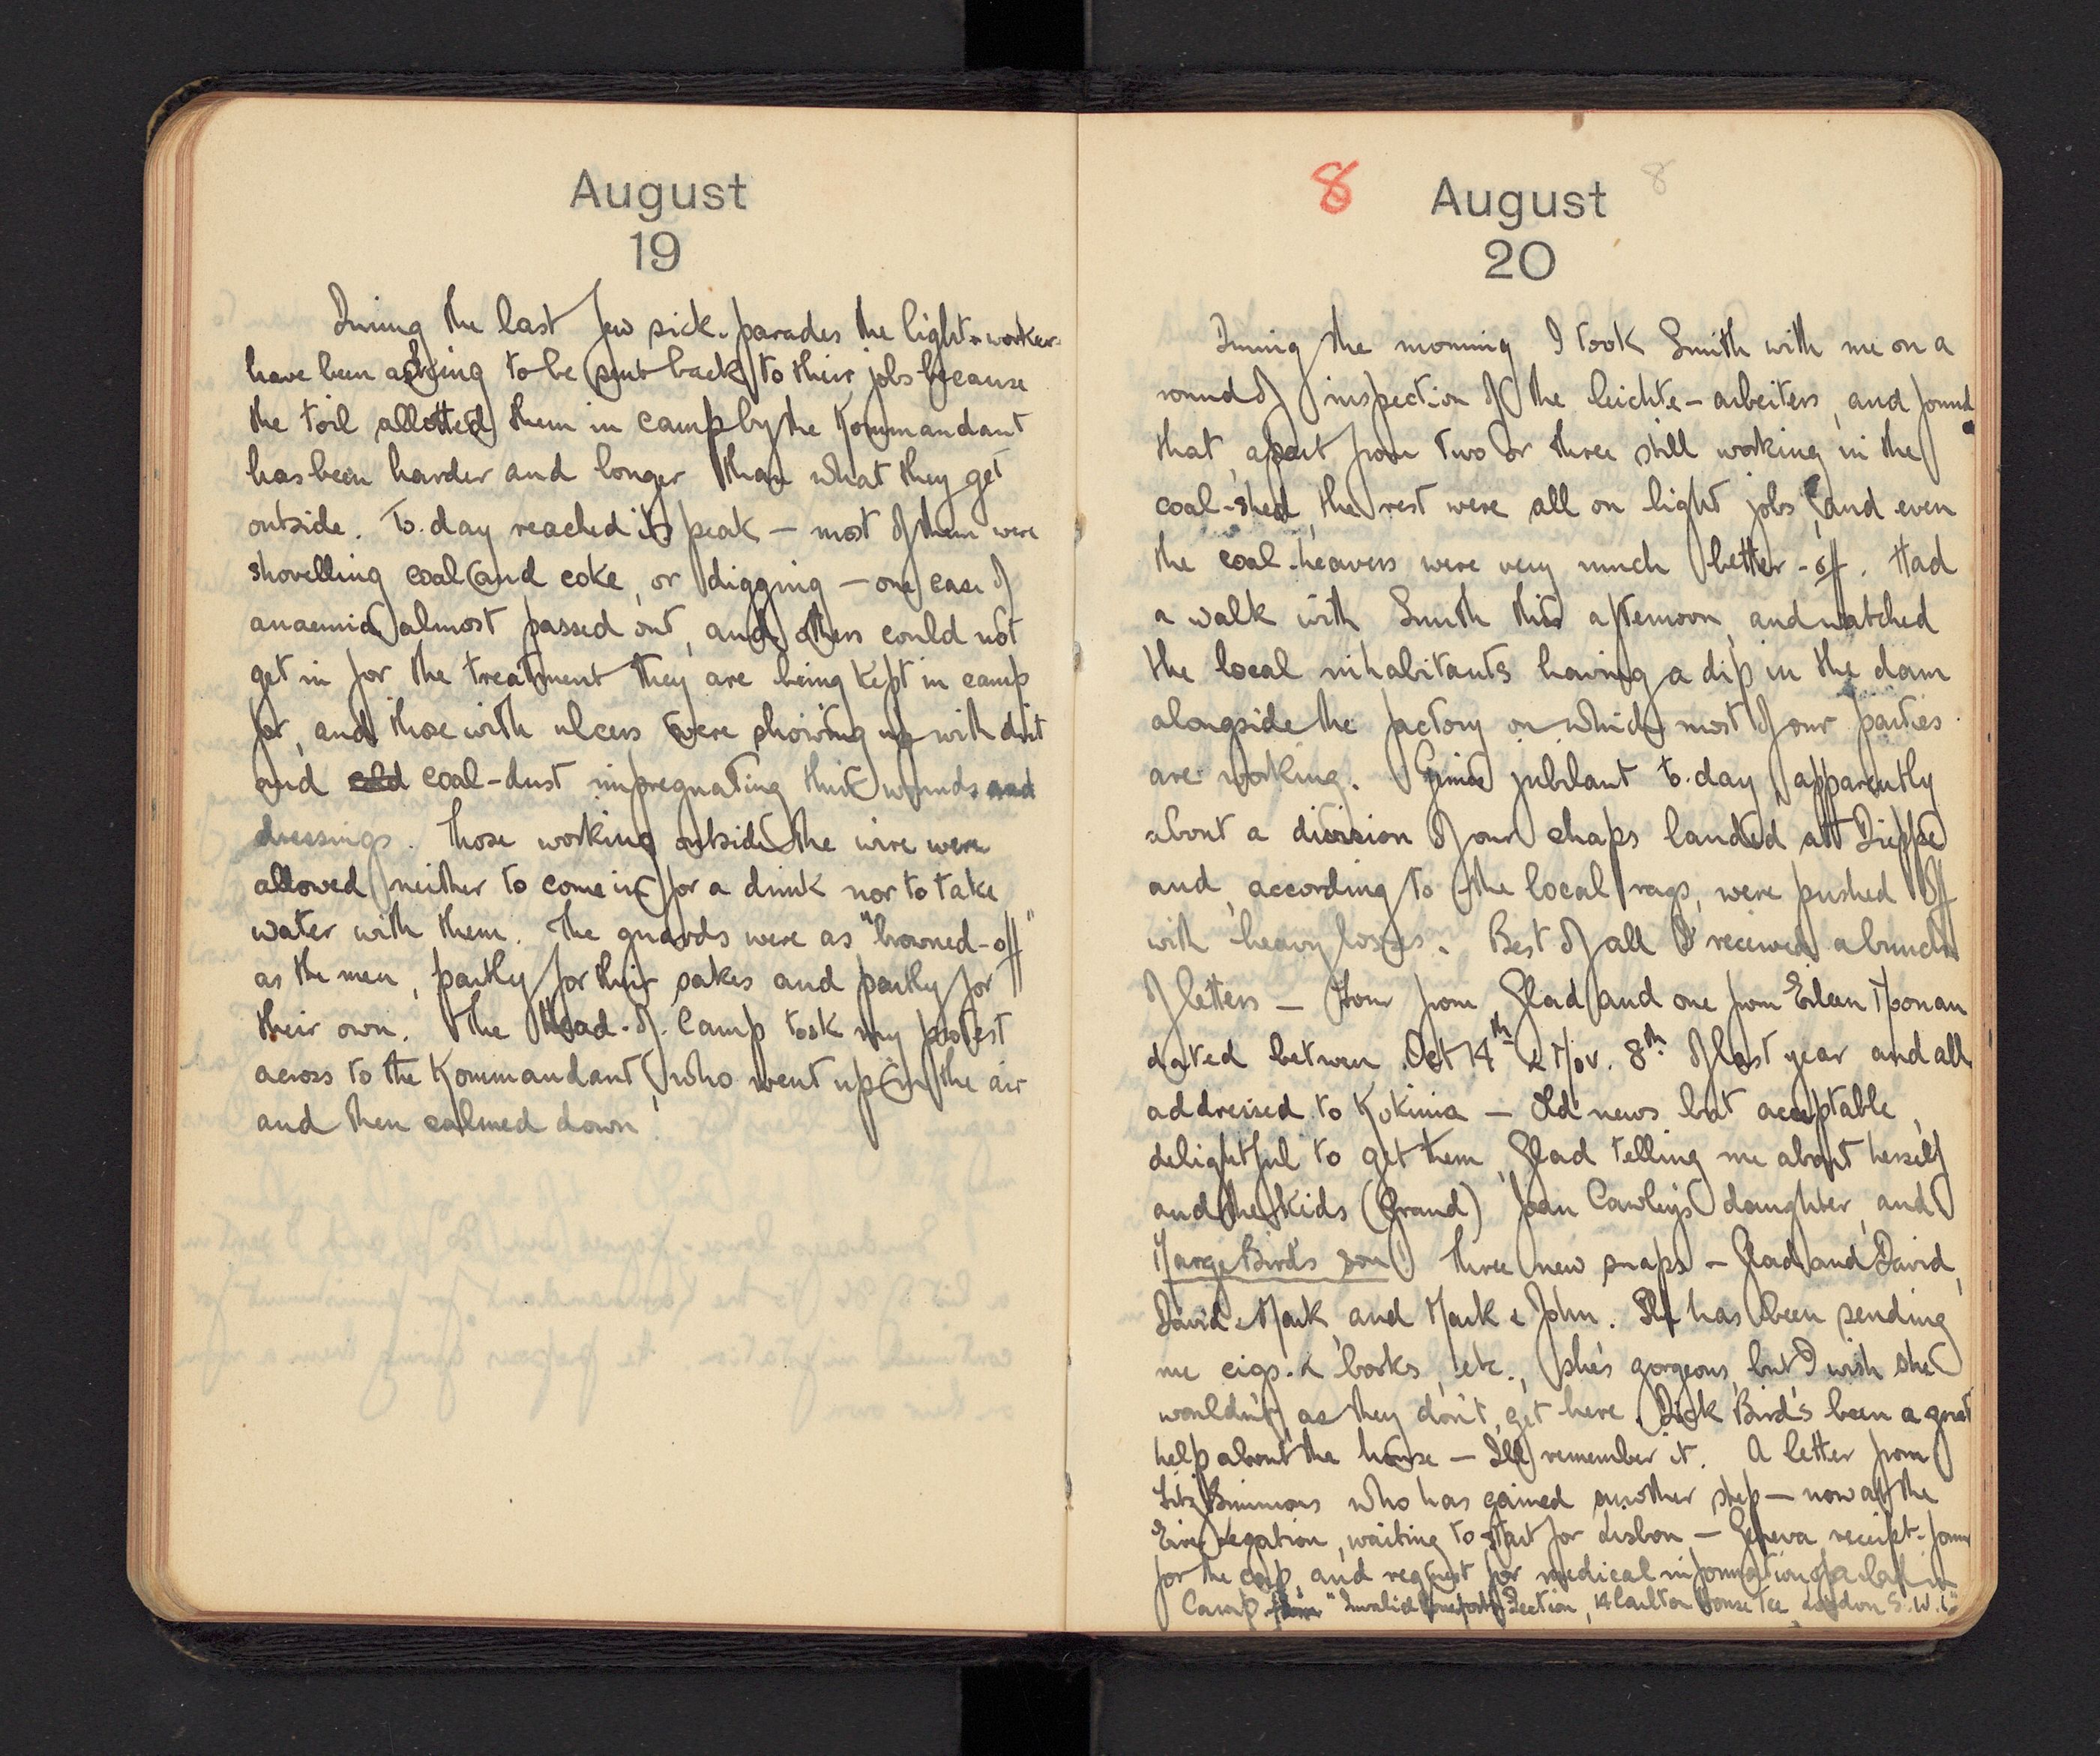 August
19
During the last few sick-parades the light-workers
have been asking to be put back to their jobs because
the toil allotted them in camp by the Kommandant
has been harder and longer than what they get
outside. To-day reached its peak — most of them were
shovelling coal and coke, or digging — one case of
anaemia almost passed out, and others could not
get in for the treatment they are being kept in camp
for, and those with ulcers were showing up with dirt
and cold coal-dust impregnating their wounds and
dressings. Those working outside the wire were
allowed neither to come in for a drink nor to take
water with them. The guards were as "browned-off"
as the men, partly for their sakes and partly for
their own. The Head-of-Camp took my protest
across to the Kommandant, who went up in the air
and then calmed down.
8
August
8
20
During the morning I took Smith with me on a
round of inspection of the leichte-arbeiters, and found
that, apart from two or three still working in the
coal-shed, the rest were all on light jobs, and even
the coal-heavers were very much better-off. Had
a walk with Smith this afternoon, and watched
the local inhabitants having a dip in the dam
alongside the factory on which most of our parties
are working. jubilant to-day, apparently
about a division of our chaps landed at Dieppe
and, according to the local rags, were pushed off
with heavy losses. Best of all I received a bunch
of letters — four from Glad and one from Eileen Noonan
dated between Oct 14th & Nov. 8th of last year and all
addressed to Kokinia — Old news but acceptable,
delightful to get them, Glad telling me about herself
and the kids (Grand) Joan Cawley's daughter, and
Marge Bird's son! Three new snaps — Glad and David,
David & Mark, and Mark & John. She has been sending
me cigs. & books, etc., she's gorgeous, but I wish she
wouldn't, as they don't get here. Dick Bird's been a great
help about the house — I'll remember it. A letter from
Fitz Simmons who has gained another step — now at the
Eire Legation, waiting to start for Lisbon — Geneva receipt-form
for the and request for medical information of a lad in
Camp from "Invalid Section, 14 Carlton House Tce London S.W.1."